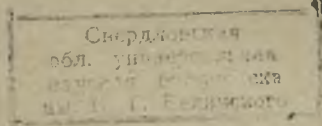 Свердловская
обл. универсальная
научная библиотека
им. В. Г. Белинского